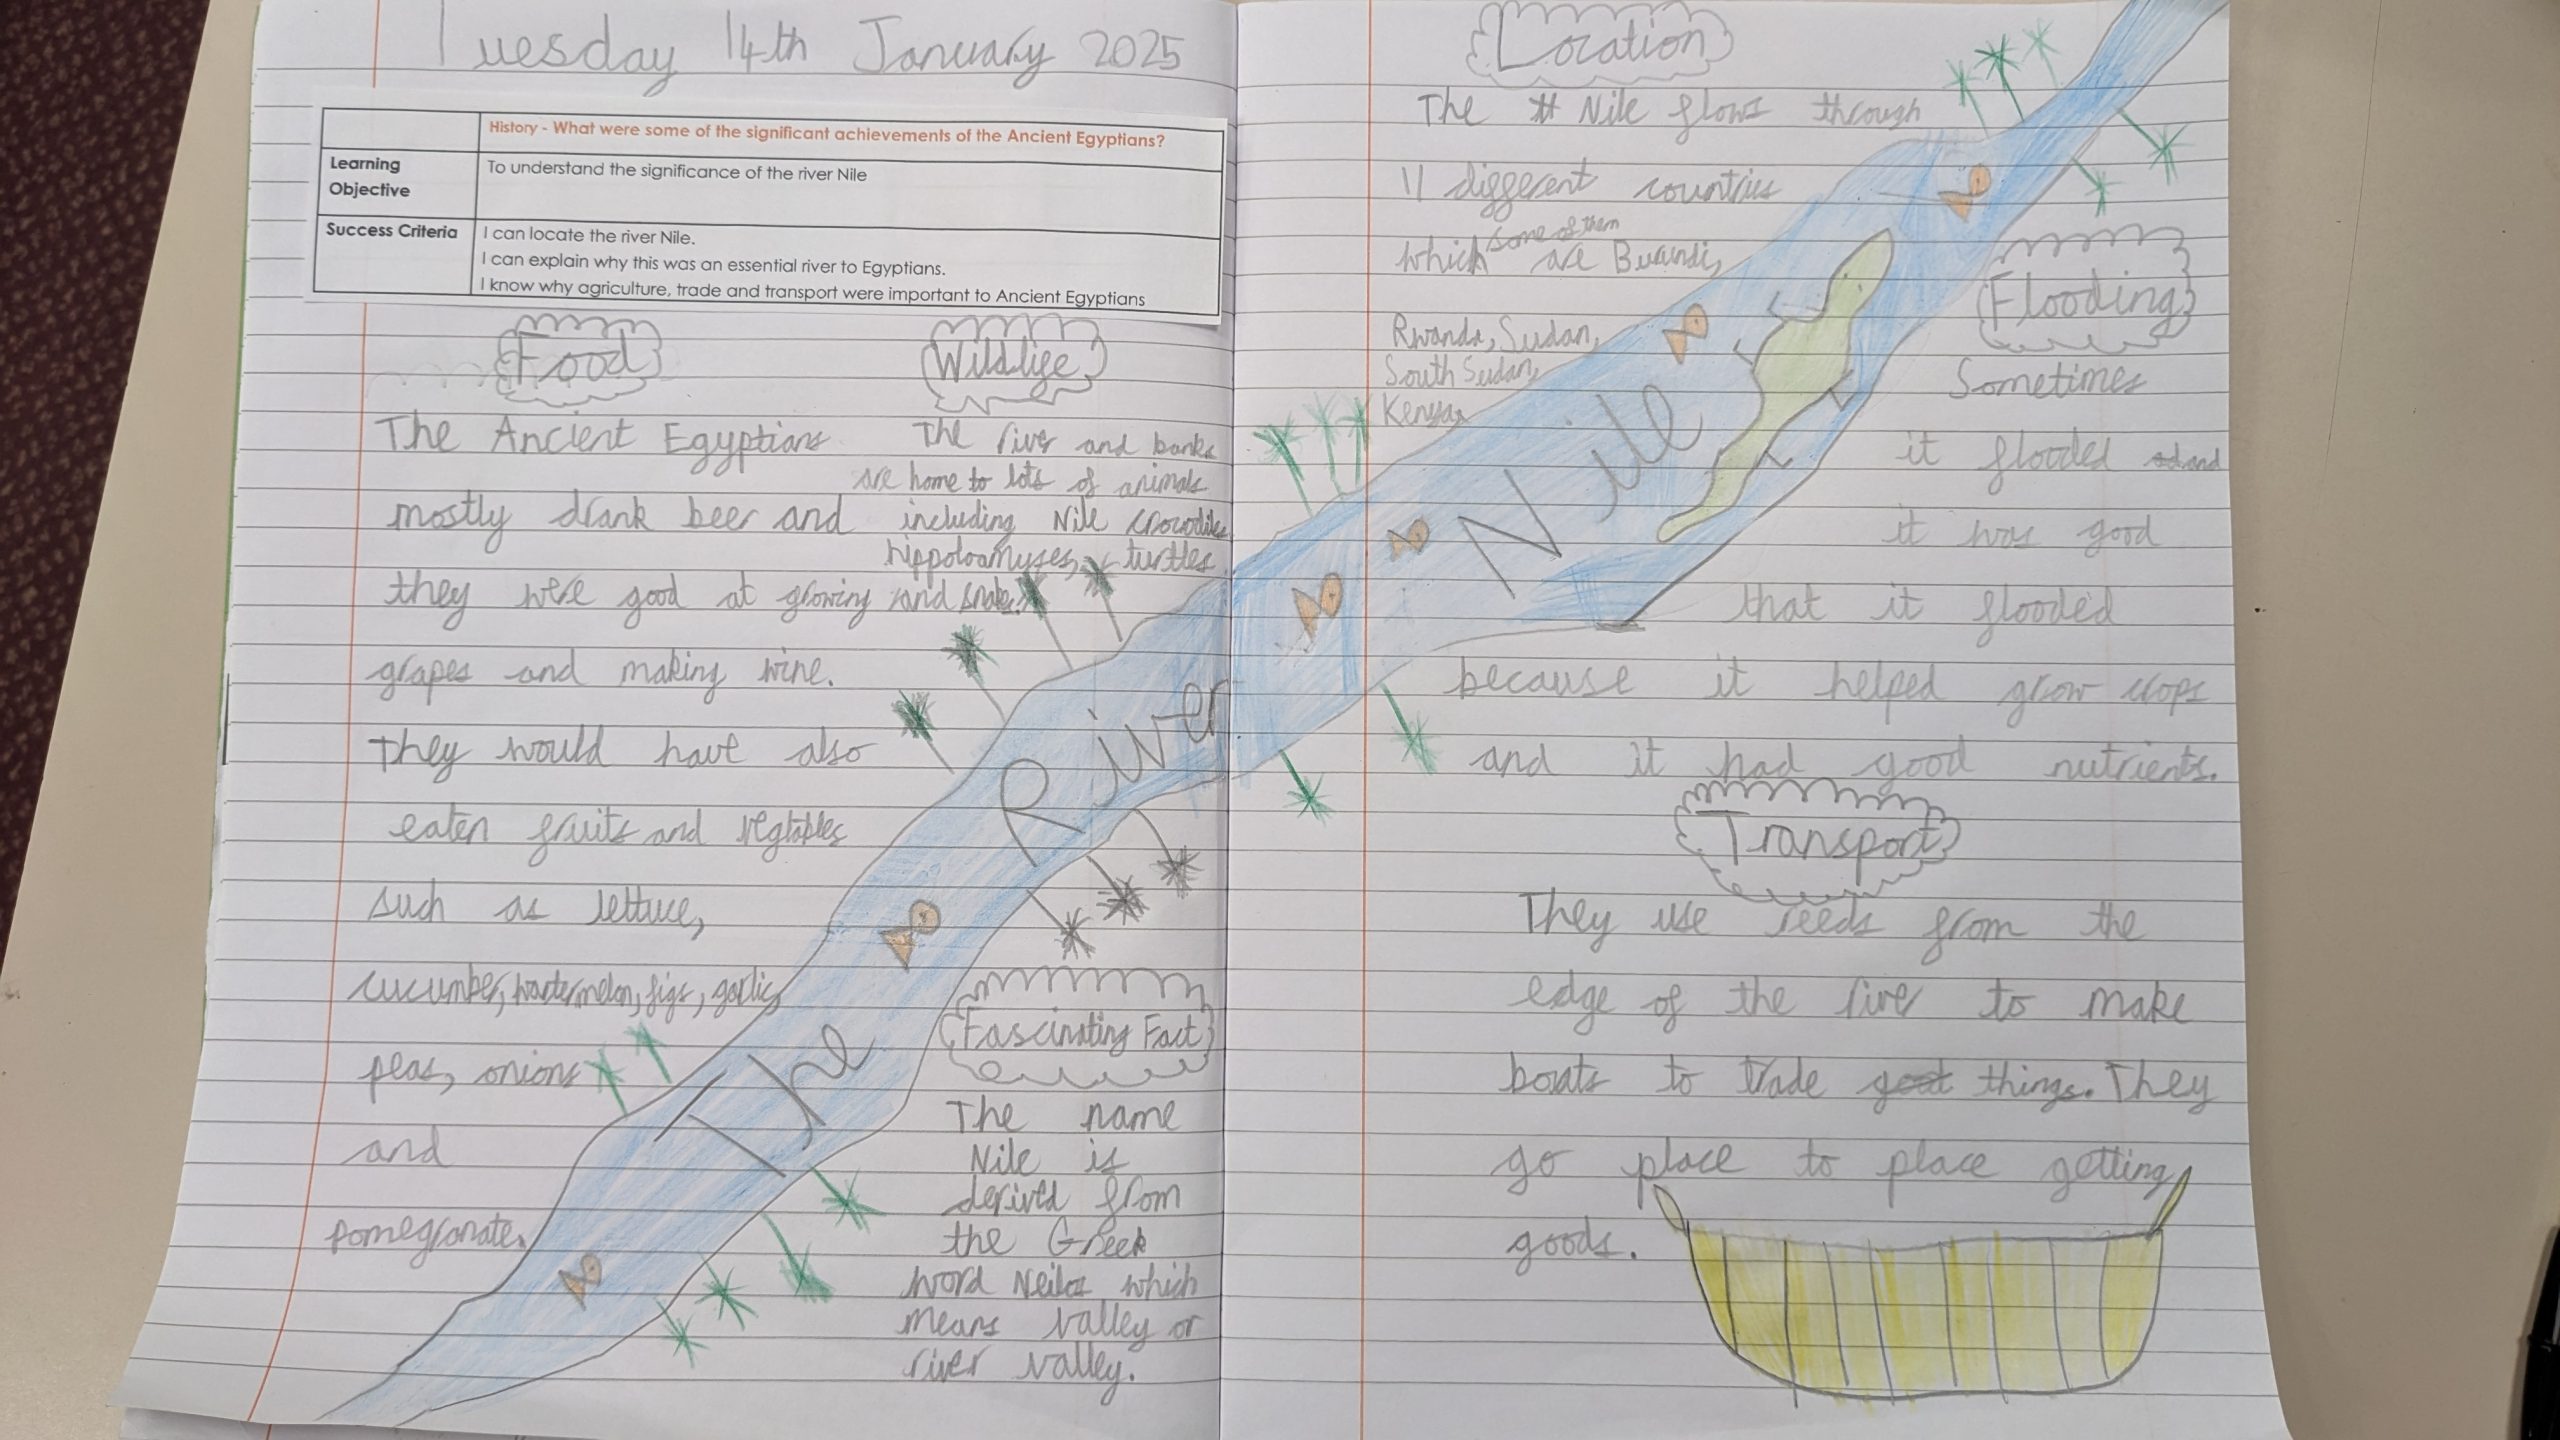 Tuesday 14th January 2025
History - What were some of the significant achievements of the Ancient Egyptians?
Learning Objective
To understand the significance of the river Nile
Success Criteria
I can locate the river Nile.
I can explain why this was an essential river to Egyptians.
I know why agriculture, trade and transport were important to Ancient Egyptians
Food
The Ancient Egyptians
mostly drank beer and
they were good at growing
grapes and making wine.
They would have also
eaten fruits and vegtables
such as lettuce,
cucumber, wartermelon, figs, garlic,
peas, onions
and
pomegranate.
Wildlife
The river and banks
are home to lots of animals
including Nile crocodiles
turtles
and snakes.
The River Nile
Fascinating Fact
The name
Nile is
derived from
the Greek
word Neilos which
means valley or
river valley.
Location
The Nile flows through
11 different countries
which some of them are Burundi,
Rwanda, Sudan,
South Sudan,
Kenya
Flooding
Sometimes
it flooded and
it was good
that it flooded
because it helped grow crops
and it had good nutrients.
Transport
They use reeds from the
edge of the river to make
boats to trade things. They
go place to place getting
goods.